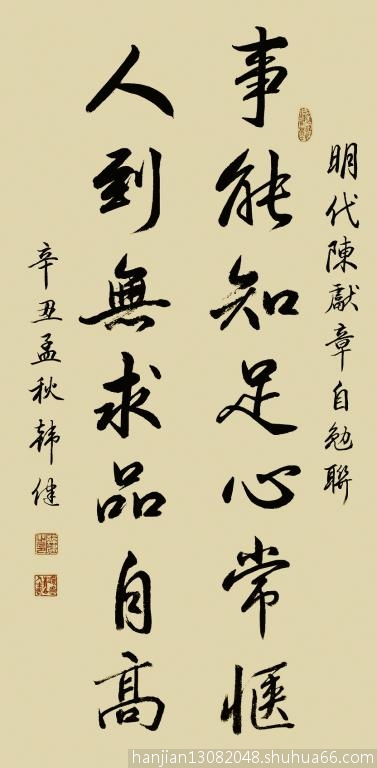 明代陳獻章自勉聯
事能知足心常愜
人到無求品自高
辛丑孟秋韓健
hanjian13082048.shuhua66.com